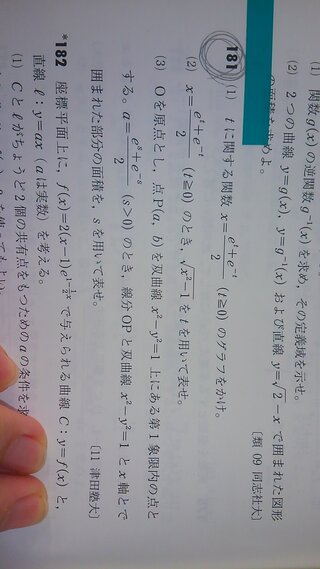 (1) 関数 g(x) の逆関数 g⁻¹(x) を求め，その定義域を示せ。
(2) 2つの曲線 y=g(x), y=g⁻¹(x) および直線 y=√2−x で囲まれた図形
求めよ。
〔類 09 同志社大〕
181 (1) t に関する関数 x=(e^t+e^(−t))/2 (t≧0) のグラフをかけ。
(2) x=(e^t+e^(−t))/2 (t≧0) のとき，√(x²−1) を t を用いて表せ。
(3) O を原点とし，点 P(a, b) を双曲線 x²−y²=1 上にある第1象限内の点と
する。a=(e^s+e^(−s))/2 (s>0) のとき，線分 OP と双曲線 x²−y²=1 と x 軸とで
囲まれた部分の面積を，s を用いて表せ。
〔11 津田塾大〕
*182 座標平面上に，f(x)=2(x−1)e^(1−½x) で与えられる曲線 C：y=f(x) と，
直線 ℓ：y=ax（a は実数）を考える。
(1) C と ℓ がちょうど2個の共有点をもつための a の条件を求